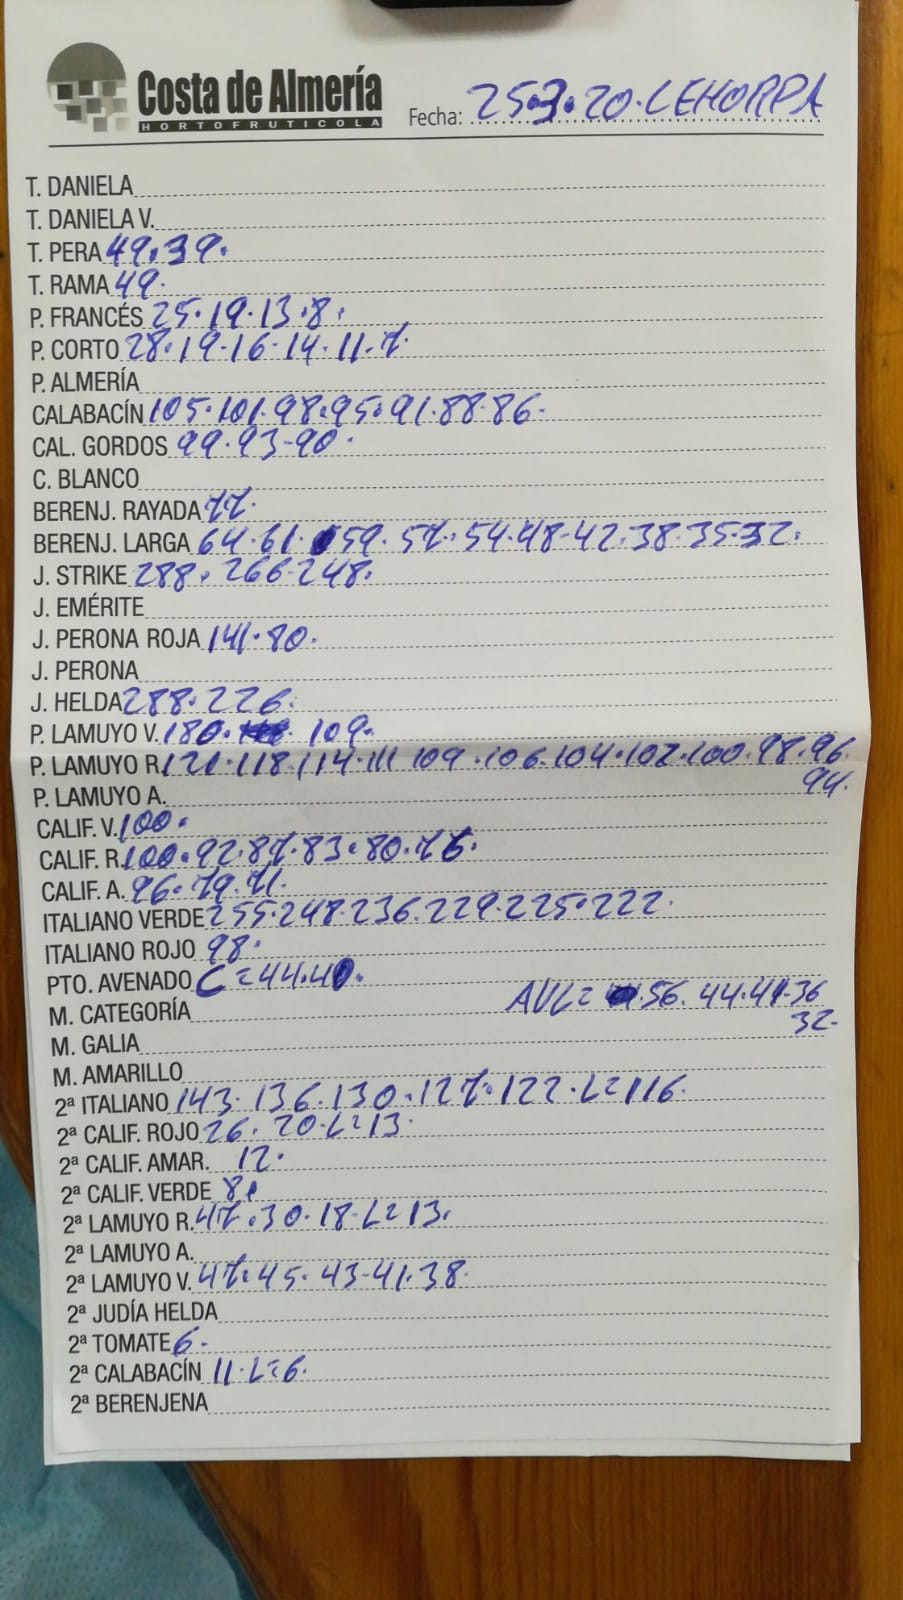 Costa de Almería
HORTOFRUTICOLA
Fecha: 25.3.20. LEHORPA
T. DANIELA
T. DANIELA V.
T. PERA 49.39.
T. RAMA 49.
P. FRANCÉS 25.19.13.8.
P. CORTO 28.19.16.14.11.7.
P. ALMERÍA
CALABACÍN 105.101.98.95.91.88.86.
CAL. GORDOS 99.93.90.
C. BLANCO
BERENJ. RAYADA 77.
BERENJ. LARGA 64.61. 59. 57.54.48.42.38.35.32.
J. STRIKE 288. 266.248.
J. EMÉRITE
J. PERONA ROJA 141.80.
J. PERONA
J. HELDA 288.226.
P. LAMUYO V. 180. 109.
P. LAMUYO R. 121.118.114.111 109.106.104.102.100.98.96
94.
P. LAMUYO A.
CALIF. V. 100.
CALIF. R. 100.92.87.83.80.76.
CALIF. A. 96.79.71.
ITALIANO VERDE 255.248.236.229.225.222.
ITALIANO ROJO 98.
PTO. AVENADO C=44.40.
M. CATEGORÍA AVL= 56. 44.41.36
32.
M. GALIA
M. AMARILLO
2ª ITALIANO 143.136.130.127.122.L=116.
2ª CALIF. ROJO 26. 20.L=13.
2ª CALIF. AMAR. 12.
2ª CALIF. VERDE 8.
2ª LAMUYO R. 47.30.18.L=13.
2ª LAMUYO A.
2ª LAMUYO V. 47.45.43.41.38.
2ª JUDÍA HELDA
2ª TOMATE 6.
2ª CALABACÍN 11.L=6.
2ª BERENJENA